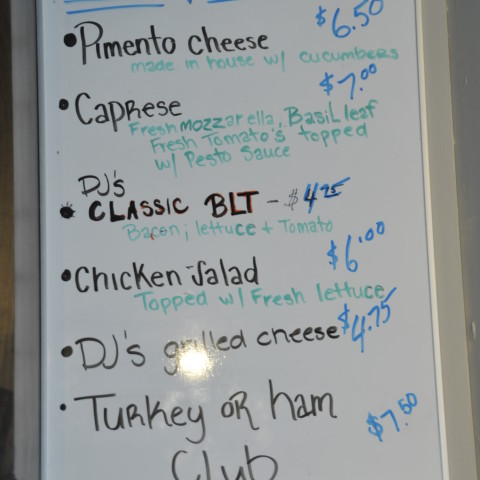 $6.50
•Pimento cheese
made in house w/ cucumbers
$7.00
•Caprese
Fresh mozzarella, Basil leaf
Fresh Tomato's topped
w/ Pesto Sauce
DJ's
• CLASSIC BLT - $4.25
Bacon, lettuce + Tomato
$6.00
•Chicken-Salad
Topped w/ Fresh lettuce
•DJ's grilled cheese $4.75
•Turkey OR ham
$7.50
Club